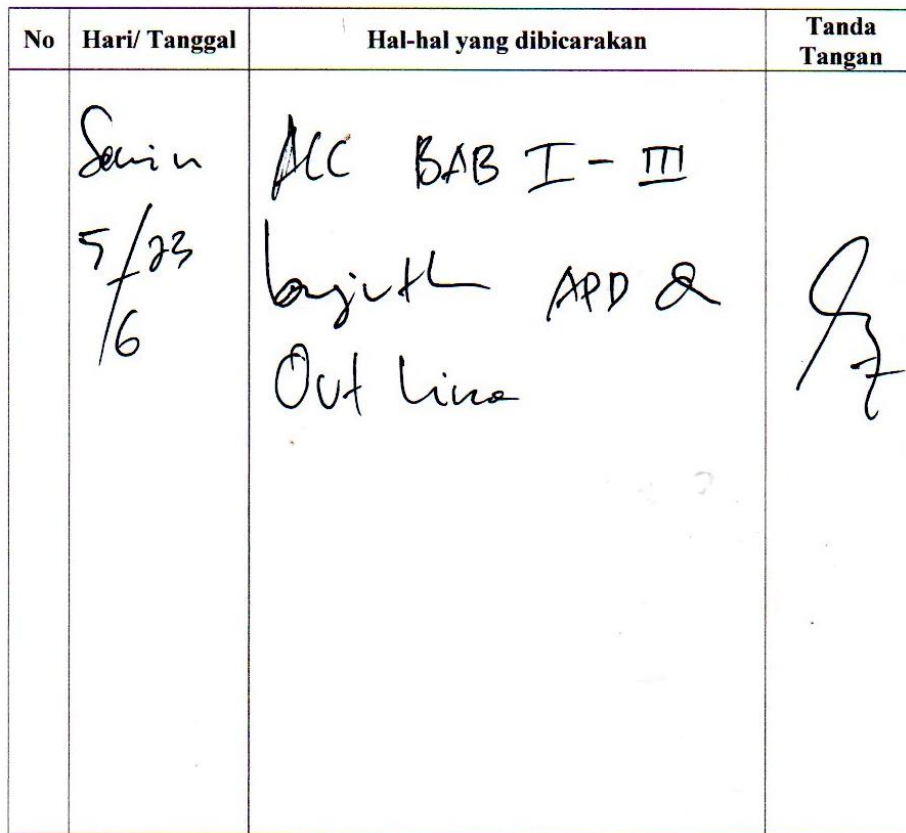 No Hari/ Tanggal Hal-hal yang dibicarakan Tanda Tangan
Senin ACC BAB I - III
5/23 APD &
6
Out Line